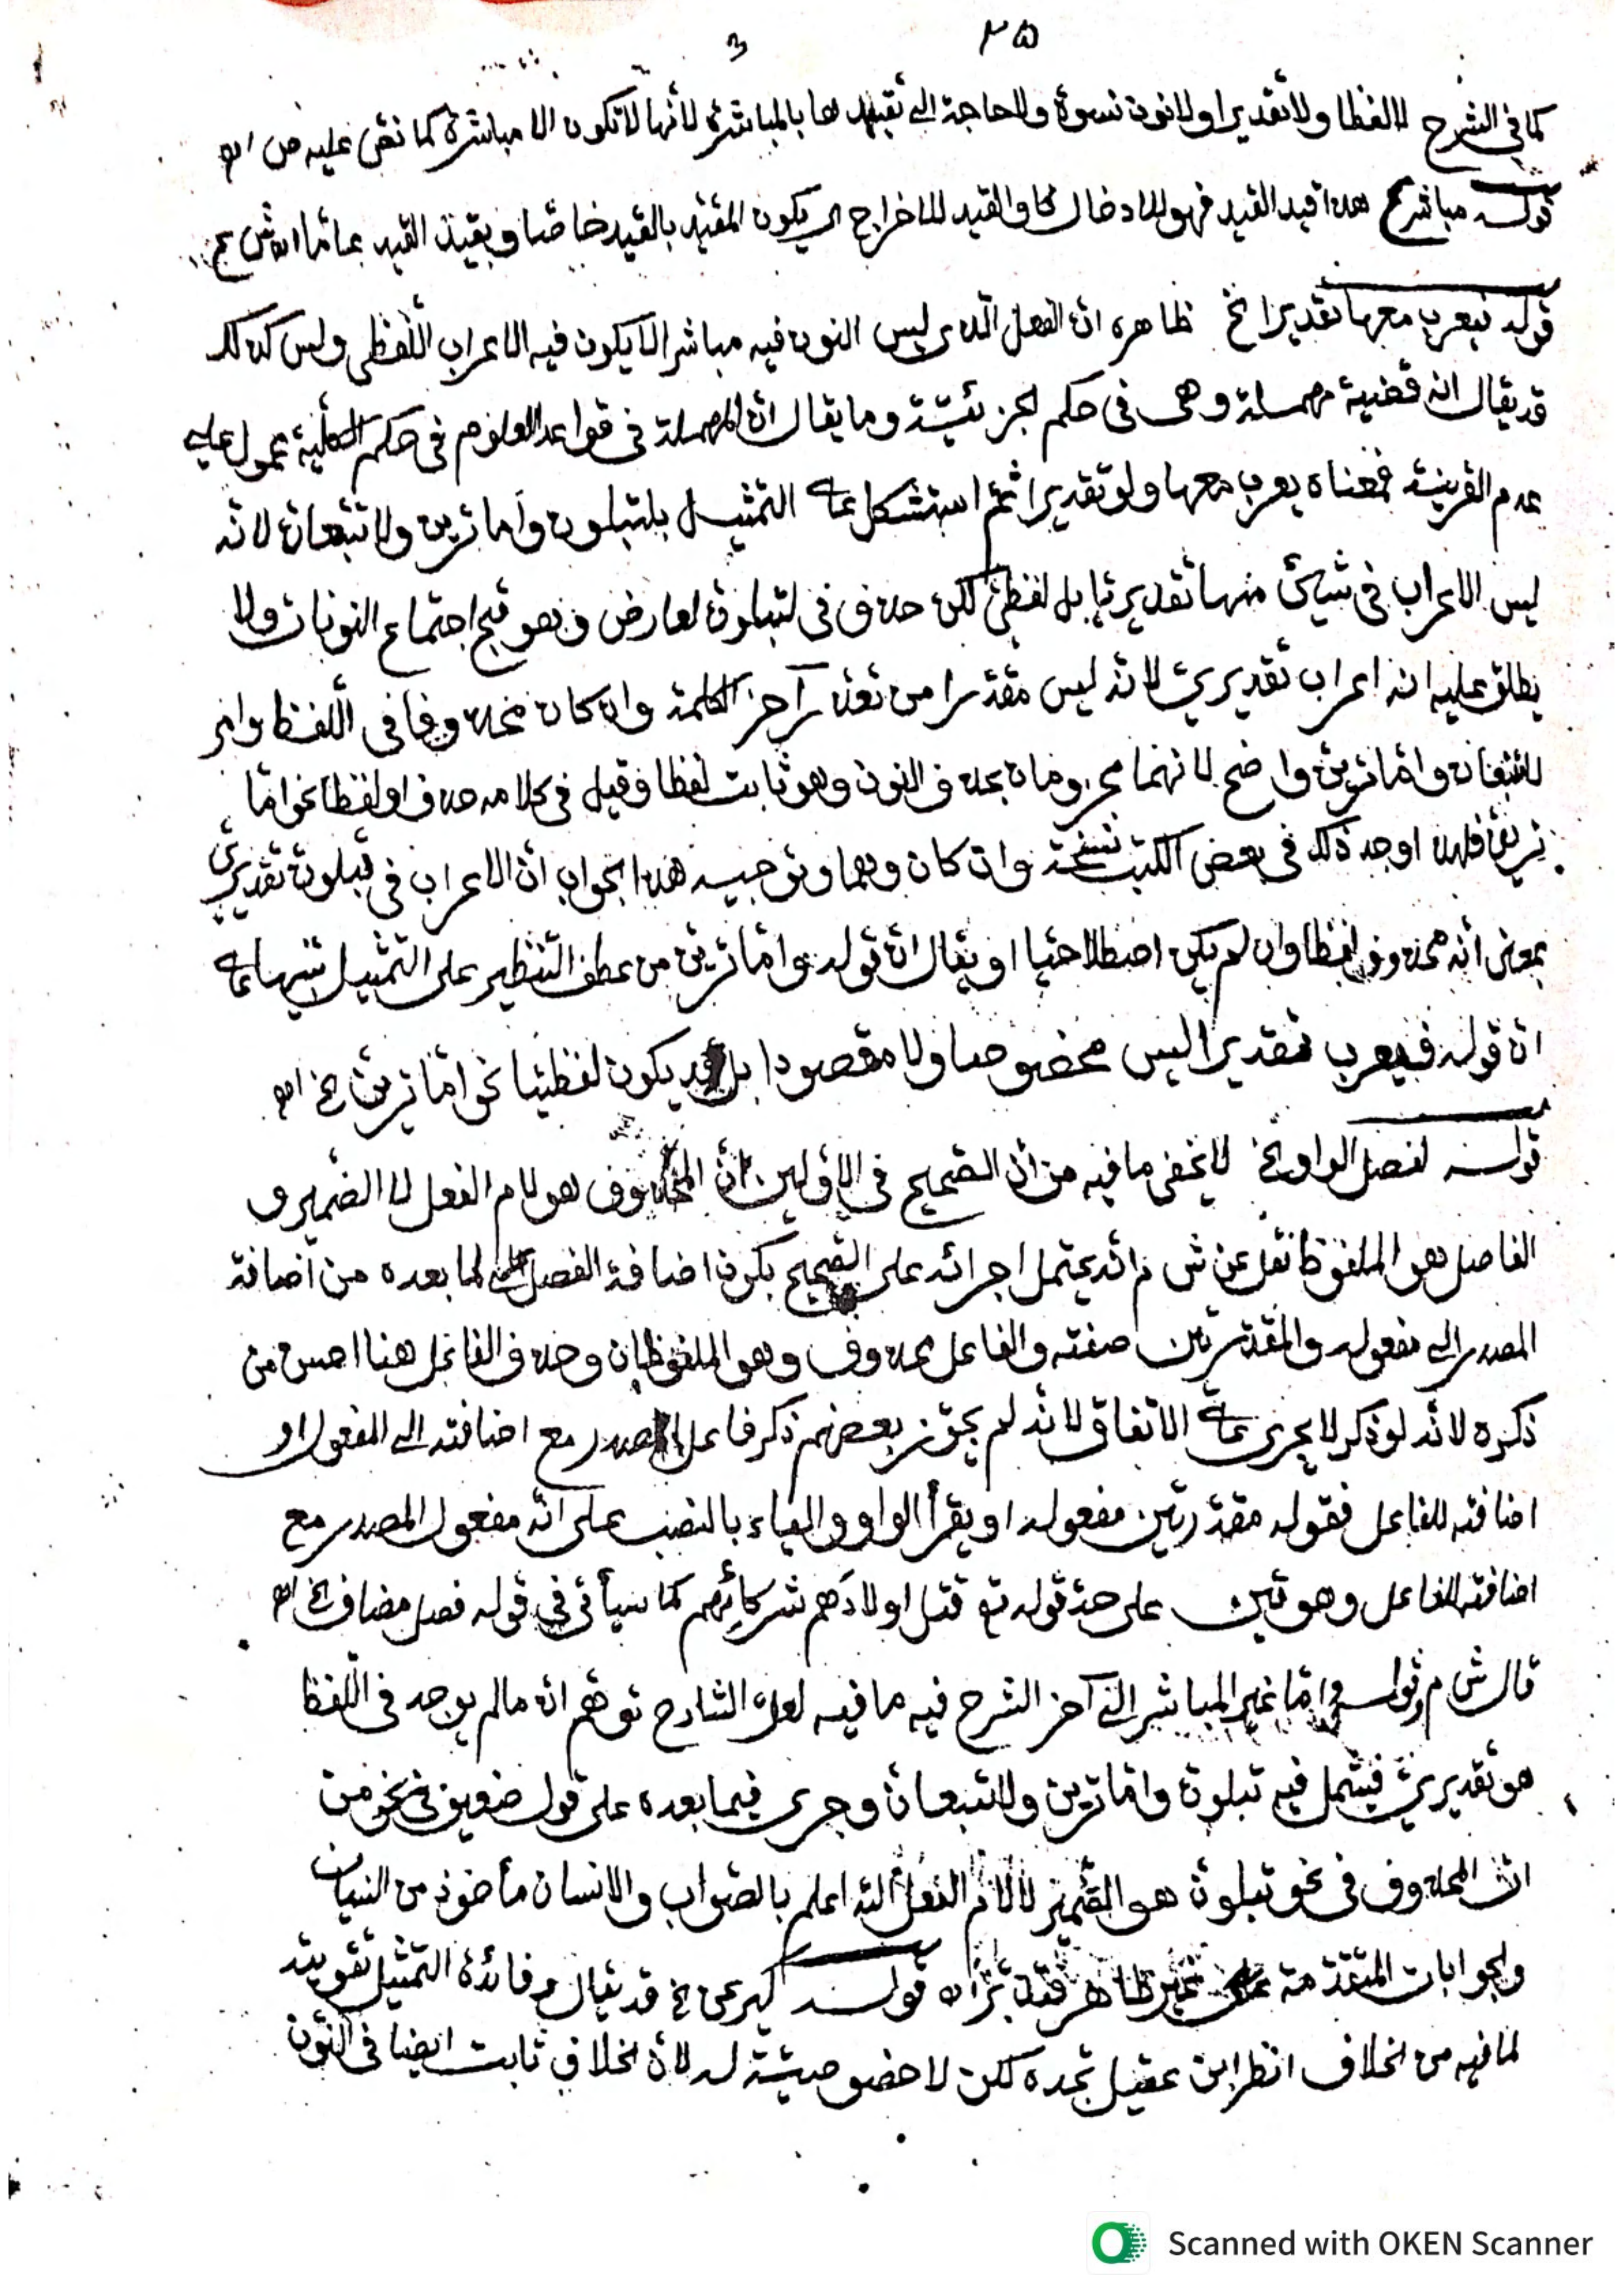 ٢٥
٣
كما في الشرح لا لفظا ولا تقديرا ولا نون نسوة ولا حاجة الى تقييدها بالمباشرة لأنها لا تكون الا مباشرة كما نص عليه ص اهـ
قوله مباشرة هذا قيد القيد فهو للادخال كما والقيد للاخراج اي يكون المقيد بالقيد خاصا وبقيد القيد عاما
قوله فيعرب معها تقديرا الخ ظاهره ان الفعل الذي ليس النون فيه مباشرا لا يكون فيه الاعراب اللفظي وليس كذلك
قد يقال انه قضية مهملة وهي في حكم الجزئية وما يقال ان المهملة في قواعد العلوم في حكم الكلية محمول على
عدم القرينة فمعناه يعرب معها ولو تقديرا ثم استشكل على التمثيل بلتبلون واما ترين ولا تتبعان لانه
ليس الاعراب في شيئ منها تقديريا بل لفظي لكن حذف في لتبلون لعارض وهو قبح اجتماع النونات ولا
يطلق عليه انه اعراب تقديري لانه ليس مقدرا من تعذر آخر الكلمة وان كان محذوفا في اللفظ وامر
تتبعان واما ترين واضح لانهما مجزومان بحذف النون وهو ثابت لفظا وقيل في كلامه حذف او لفظا نحو اما
ترين فلهذا وجد ذلك في بعض الكتب نسخة وان كان وهما وتوجيه هذا الجواب ان الاعراب في تبلون تقديري
بمعنى أنه محذوف لفظا وان لم يكن اصطلاحيا او يقال ان قوله واما ترين من عطف التنظير على التمثيل تنبيها على
ان قوله فيعرب تقديرا ليس مخصوصا ولا مقصودا بل قد يكون لفظيا نحو اما ترين الخ اهـ
قوله لفصل الواو الخ لا يخفى ما فيه من ان الصحيح في الاولين ان المحذوف هو لام الفعل لا الضمير و
الفاصل هو الملفوظ نقل عن ش م انه يحتمل اجرائه على الصحيح بكون اضافة الفصل لما بعده من اضافة
المصدر الى مفعوله والمقدرتين صفته والفاعل محذوف وهو الملفوظان وحذف الفاعل هنا احسن من
ذكره لانه لو ذكر لا يجري على الاتفاق لانه لم يجوز بعضهم ذكر فاعل المصدر مع اضافته الى المفعول او
اضافته للفاعل فقوله مقدرتين مفعوله او يقرأ الواو والياء بالنصب على انه مفعول المصدر مع
اضافته للفاعل وهو تين على حد قوله تع قتل اولادَهم شركائِهم كما سيأتي في قوله فصل مضاف الخ اهـ
قال ش م قوله واما غير المباشر الى آخر الشرح فيه ما فيه لعل الشارح توهم ان ما لم يوجد في اللفظ
هو تقديري فيشمل فيه تبلون واما ترين ولا تتبعان وجرى فيما بعده على قول ضعيف في نحو من
ان المحذوف في نحو تبلون هو الضمير لا لام الفعل الله اعلم بالصواب والانسان مأخوذ من النسيان
والجوابات المتقدمة على غير ظاهر فتدبر اهـ قوله كيرعن الخ قد يقال وفائدة التمثيل تقويته
لما فيه من الخلاف انظر ابن عقيل تجده لكن لا خصوصية له لان الخلاف ثابت ايضا في النون
Scanned with OKEN Scanner